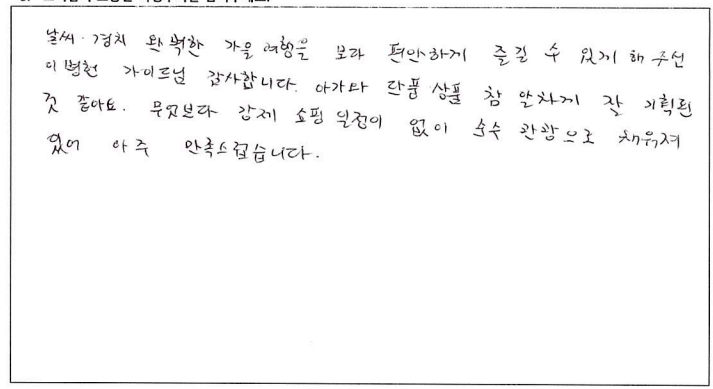 날씨·경치 완벽한 가을 여행을 보다 편안하게 즐길 수 있게 해 주신
이병헌 가이드님 감사합니다. 아가타 단풍 상품 참 알차게 잘 기획된
것 같아요. 무엇보다 강제 쇼핑 일정이 없이 순수 관광으로 채워져
있어 아주 만족스럽습니다.